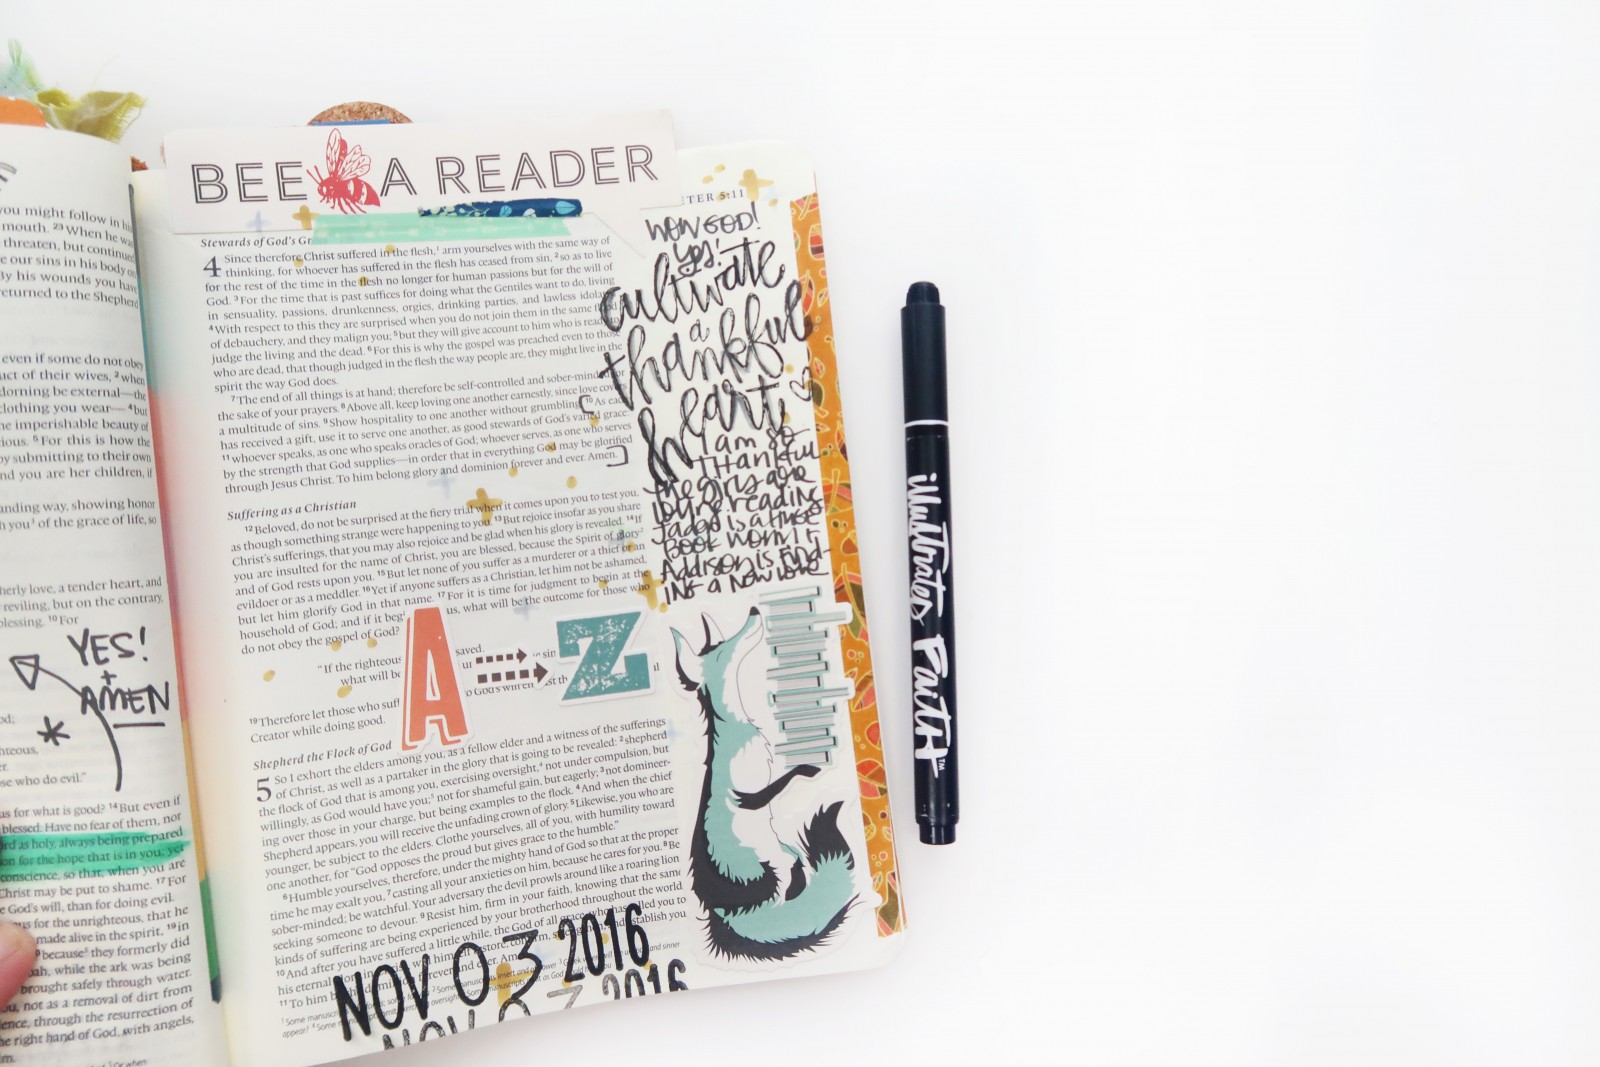 you might follow in his
mouth. 23 When he was
threaten, but continued
e our sins in his body on
By his wounds you have
returned to the Shepherd
even if some do not obey
uct of their wives, 2 when
dorning be external—the
clothing you wear— 4 but
he imperishable beauty of
cious. 5 For this is how the
by submitting to their own
nd you are her children, if
anding way, showing honor
h you1 of the grace of life, so
herly love, a tender heart, and
reviling, but on the contrary,
blessing. 10 For
YES!
+
AMEN
*
od;
hteous,
er.
se who do evil."
as for what is good? 14 But even if
blessed. Have no fear of them, nor
rd as holy, always being prepared
on for the hope that is in you; yet
conscience, so that, when you are
Christ may be put to shame. 17 For
e God's will, than for doing evil.
us for the unrighteous, that he
made alive in the spirit, 19 in
because5 they formerly did
ah, while the ark was being
brought safely through water.
u, not as a removal of dirt from
ience, through the resurrection of
he right hand of God, with angels,
m.
BEE A READER
ETER 5:11
Stewards of God's Gr
4 Since therefore Christ suffered in the flesh,1 arm yourselves with the same way of
thinking, for whoever has suffered in the flesh has ceased from sin, 2 so as to live
for the rest of the time in the flesh no longer for human passions but for the will of
God. 3 For the time that is past suffices for doing what the Gentiles want to do, living
in sensuality, passions, drunkenness, orgies, drinking parties, and lawless idolatry.
4 With respect to this they are surprised when you do not join them in the same flood
of debauchery, and they malign you; 5 but they will give account to him who is ready to
judge the living and the dead. 6 For this is why the gospel was preached even to those
who are dead, that though judged in the flesh the way people are, they might live in the
spirit the way God does.
7 The end of all things is at hand; therefore be self-controlled and sober-minded for
the sake of your prayers. 8 Above all, keep loving one another earnestly, since love covers
a multitude of sins. 9 Show hospitality to one another without grumbling. 10 As each
has received a gift, use it to serve one another, as good stewards of God's varied grace:
11 whoever speaks, as one who speaks oracles of God; whoever serves, as one who serves
by the strength that God supplies—in order that in everything God may be glorified
through Jesus Christ. To him belong glory and dominion forever and ever. Amen.
Suffering as a Christian
12 Beloved, do not be surprised at the fiery trial when it comes upon you to test you,
as though something strange were happening to you. 13 But rejoice insofar as you share
Christ's sufferings, that you may also rejoice and be glad when his glory is revealed. 14 If
you are insulted for the name of Christ, you are blessed, because the Spirit of glory2
and of God rests upon you. 15 But let none of you suffer as a murderer or a thief or an
evildoer or as a meddler. 16 Yet if anyone suffers as a Christian, let him not be ashamed,
but let him glorify God in that name. 17 For it is time for judgment to begin at the
household of God; and if it begi us, what will be the outcome for those who
do not obey the gospel of God?
"If the righteous saved,
what will be
A Z
19 Therefore let those who suff to God's will
Creator while doing good.
Shepherd the Flock of God
5 So I exhort the elders among you, as a fellow elder and a witness of the sufferings
of Christ, as well as a partaker in the glory that is going to be revealed: 2 shepherd
the flock of God that is among you, exercising oversight,4 not under compulsion, but
willingly, as God would have you;5 not for shameful gain, but eagerly; 3 not domineer-
ing over those in your charge, but being examples to the flock. 4 And when the chief
Shepherd appears, you will receive the unfading crown of glory. 5 Likewise, you who are
younger, be subject to the elders. Clothe yourselves, all of you, with humility toward
one another, for "God opposes the proud but gives grace to the humble."
6 Humble yourselves, therefore, under the mighty hand of God so that at the proper
time he may exalt you, 7 casting all your anxieties on him, because he cares for you. 8 Be
sober-minded; be watchful. Your adversary the devil prowls around like a roaring lion
seeking someone to devour. 9 Resist him, firm in your faith, knowing that the same
kinds of suffering are being experienced by your brotherhood throughout the world.
10 And after you have suffered a little while, the God of all grace, who has called you to
his eternal will himself restore, confirm, strengthen, and establish you
11 To him be the dominion forever and ever. Amen.
NOV 03 2016
NOV 03 2016
WOW GOD!
yes!
cultivate
a
thankful
heart
I am so
thankful
the girls are
loving reading
Jaden is a huge
Book worm +
Addison is find-
ing a new love
illustrated Faith™